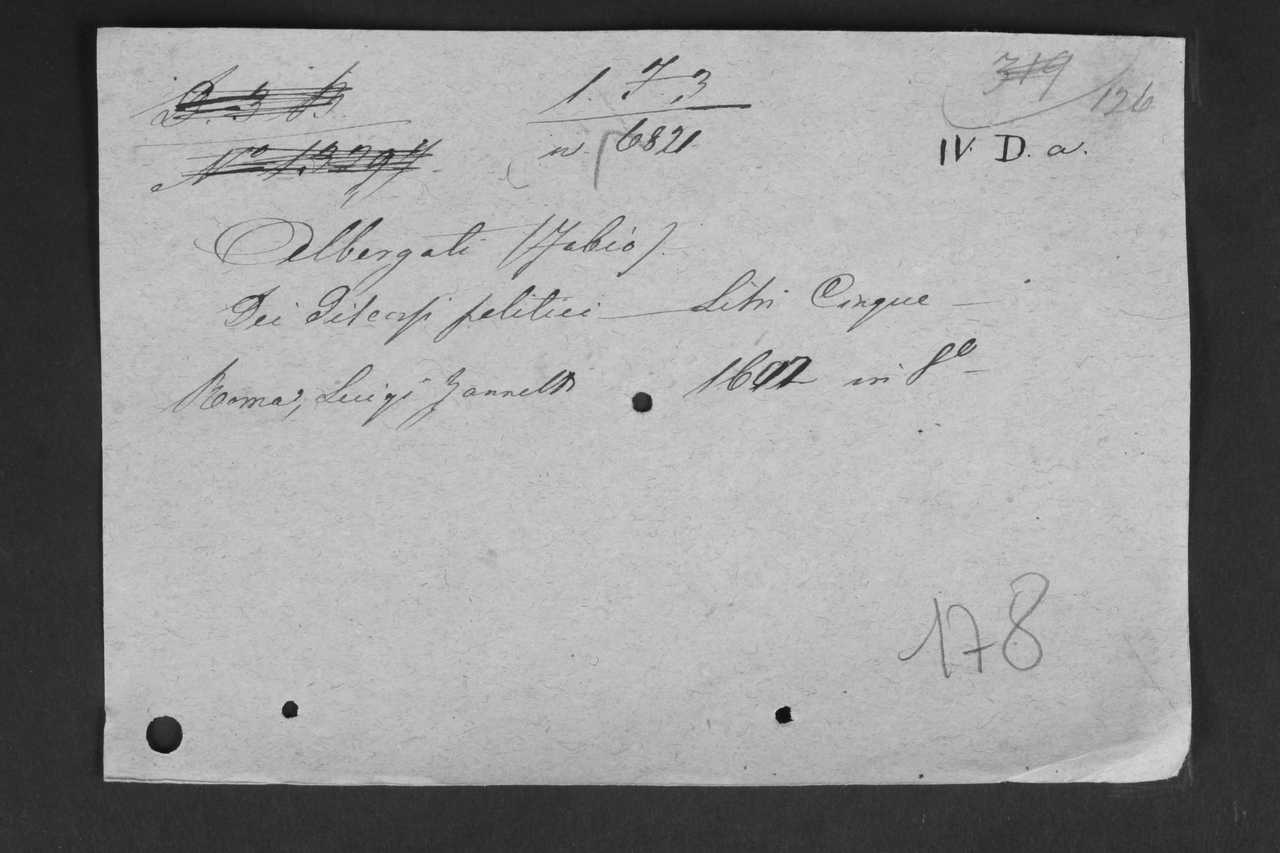 1. 7. 3
n. 6821
319
126
IV. D. a.
Albergati (Fabio).
Dei discorsi politici — Libri Cinque —
Roma, Luigi Zannetti 16 in 8º
178